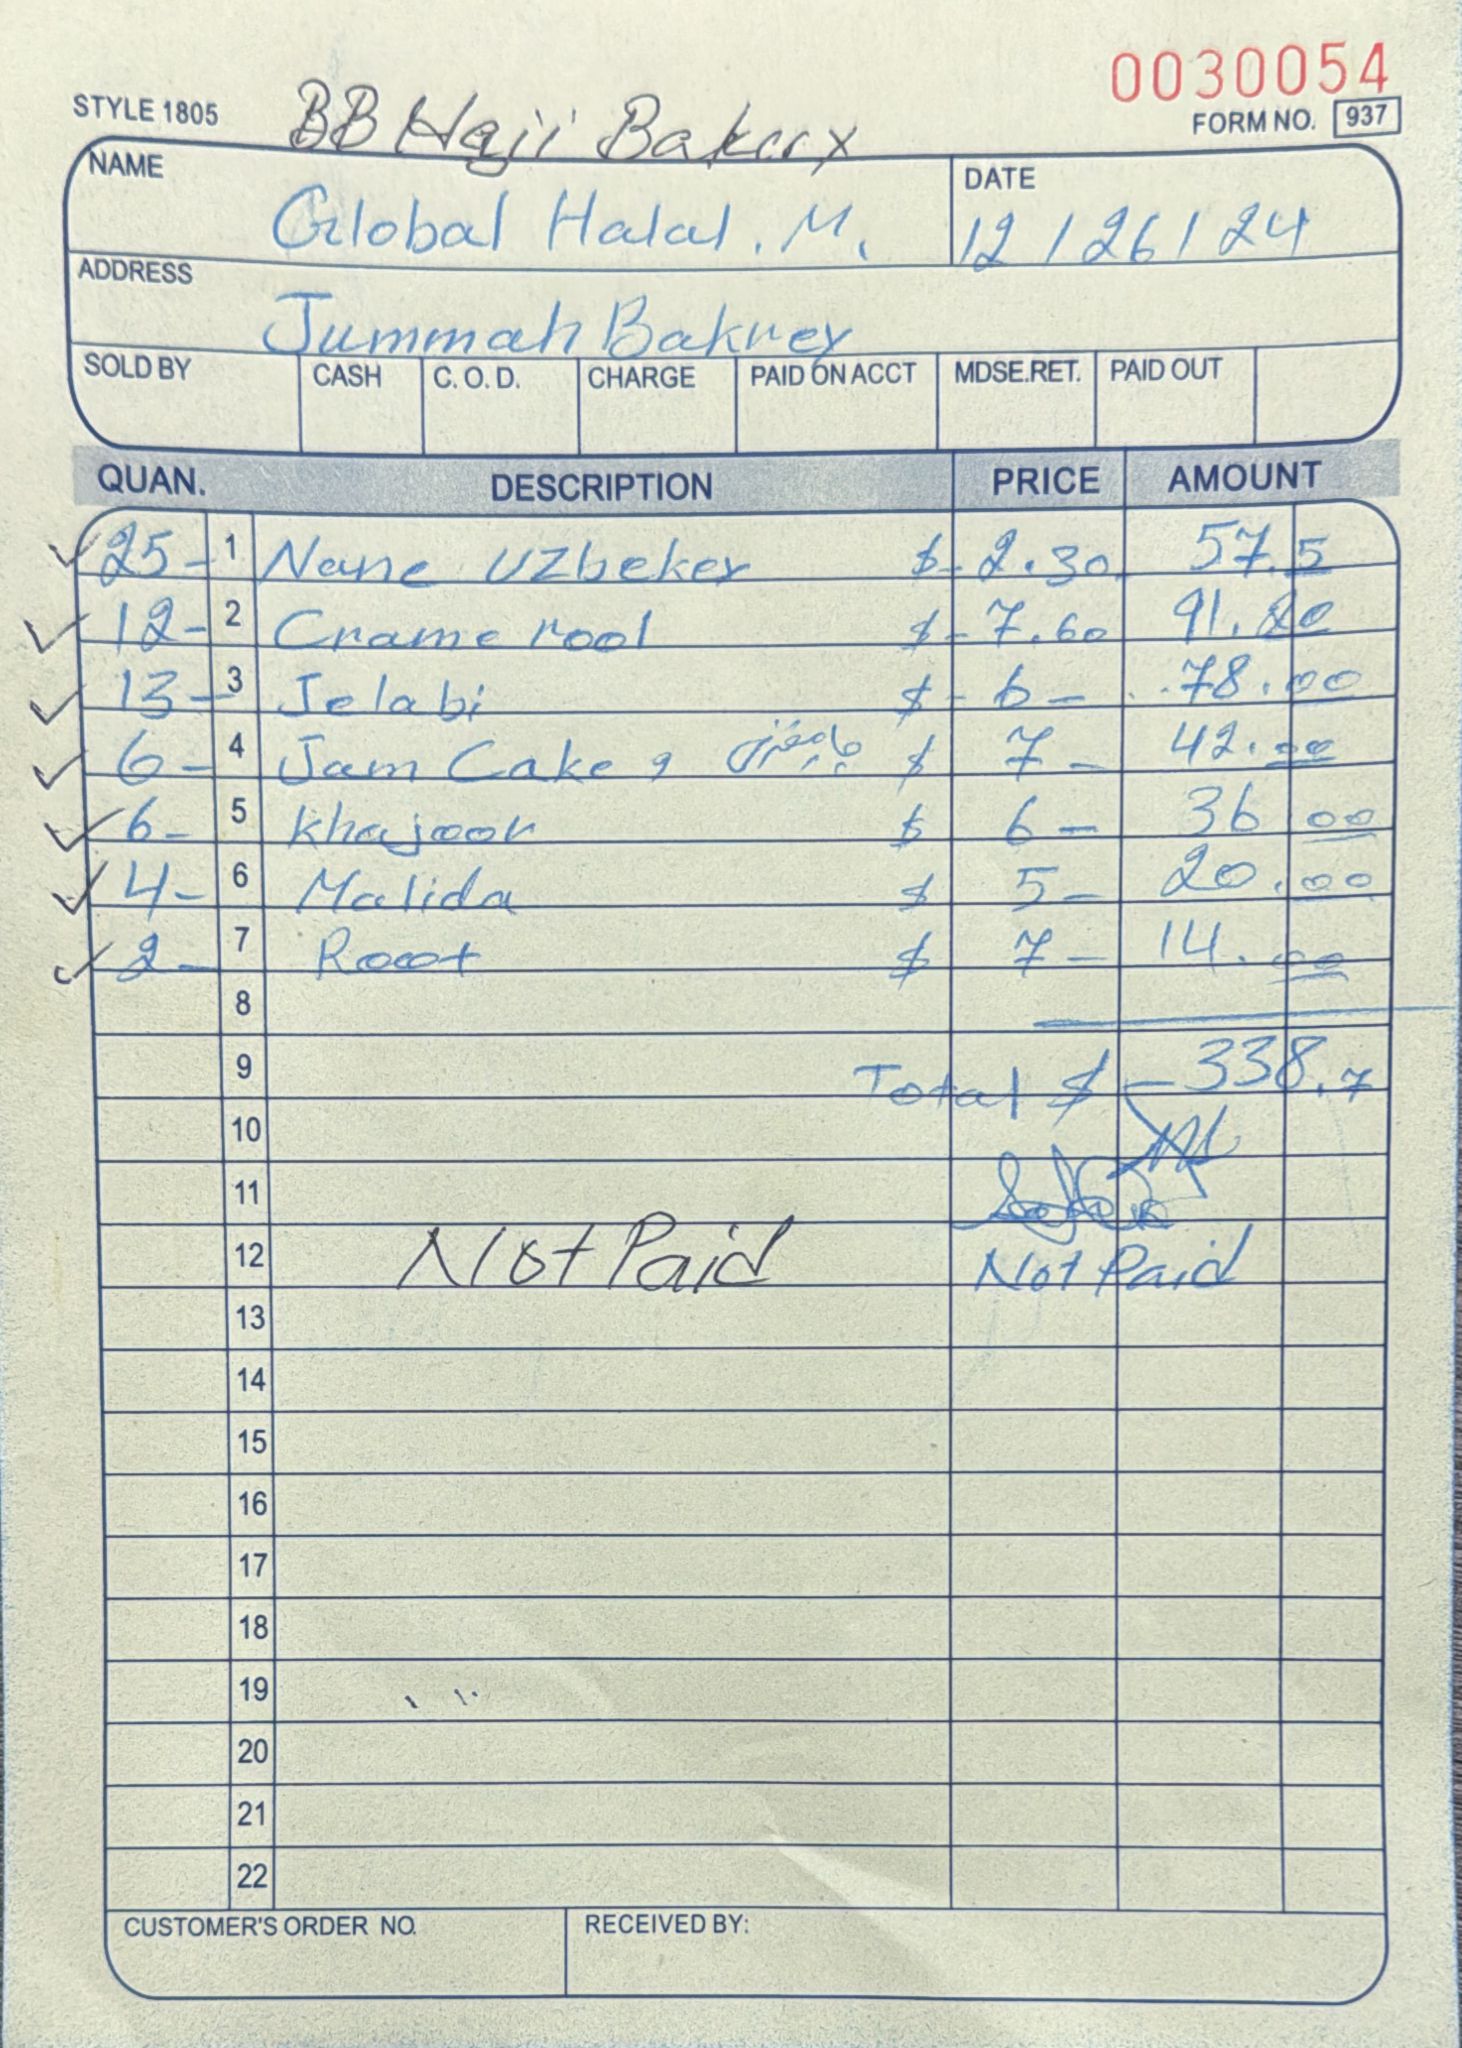 0030054
STYLE 1805
BB Haji Bakery
FORM NO. 937
NAME Global Halal. M.
DATE 12/26/24
ADDRESS Jummah Bakrey
SOLD BY CASH C. O. D. CHARGE PAID ON ACCT MDSE.RET. PAID OUT
QUAN. DESCRIPTION PRICE AMOUNT
25- 1 Nane Uzbekey $- 2.30 57.5
12- 2 Crame rool $- 7.60 91.20
13- 3 Jelabi $- 6- 78.00
6- 4 Jam Cake $ 7- 42.00
6- 5 Khajoor $ 6- 36 00
4- 6 Malida $ 5- 20.00
2- 7 Root $ 7- 14.00
8
9 Total $ -338.7
10
11
12 Not Paid Not Paid
13
14
15
16
17
18
19
20
21
22
CUSTOMER'S ORDER NO. RECEIVED BY: